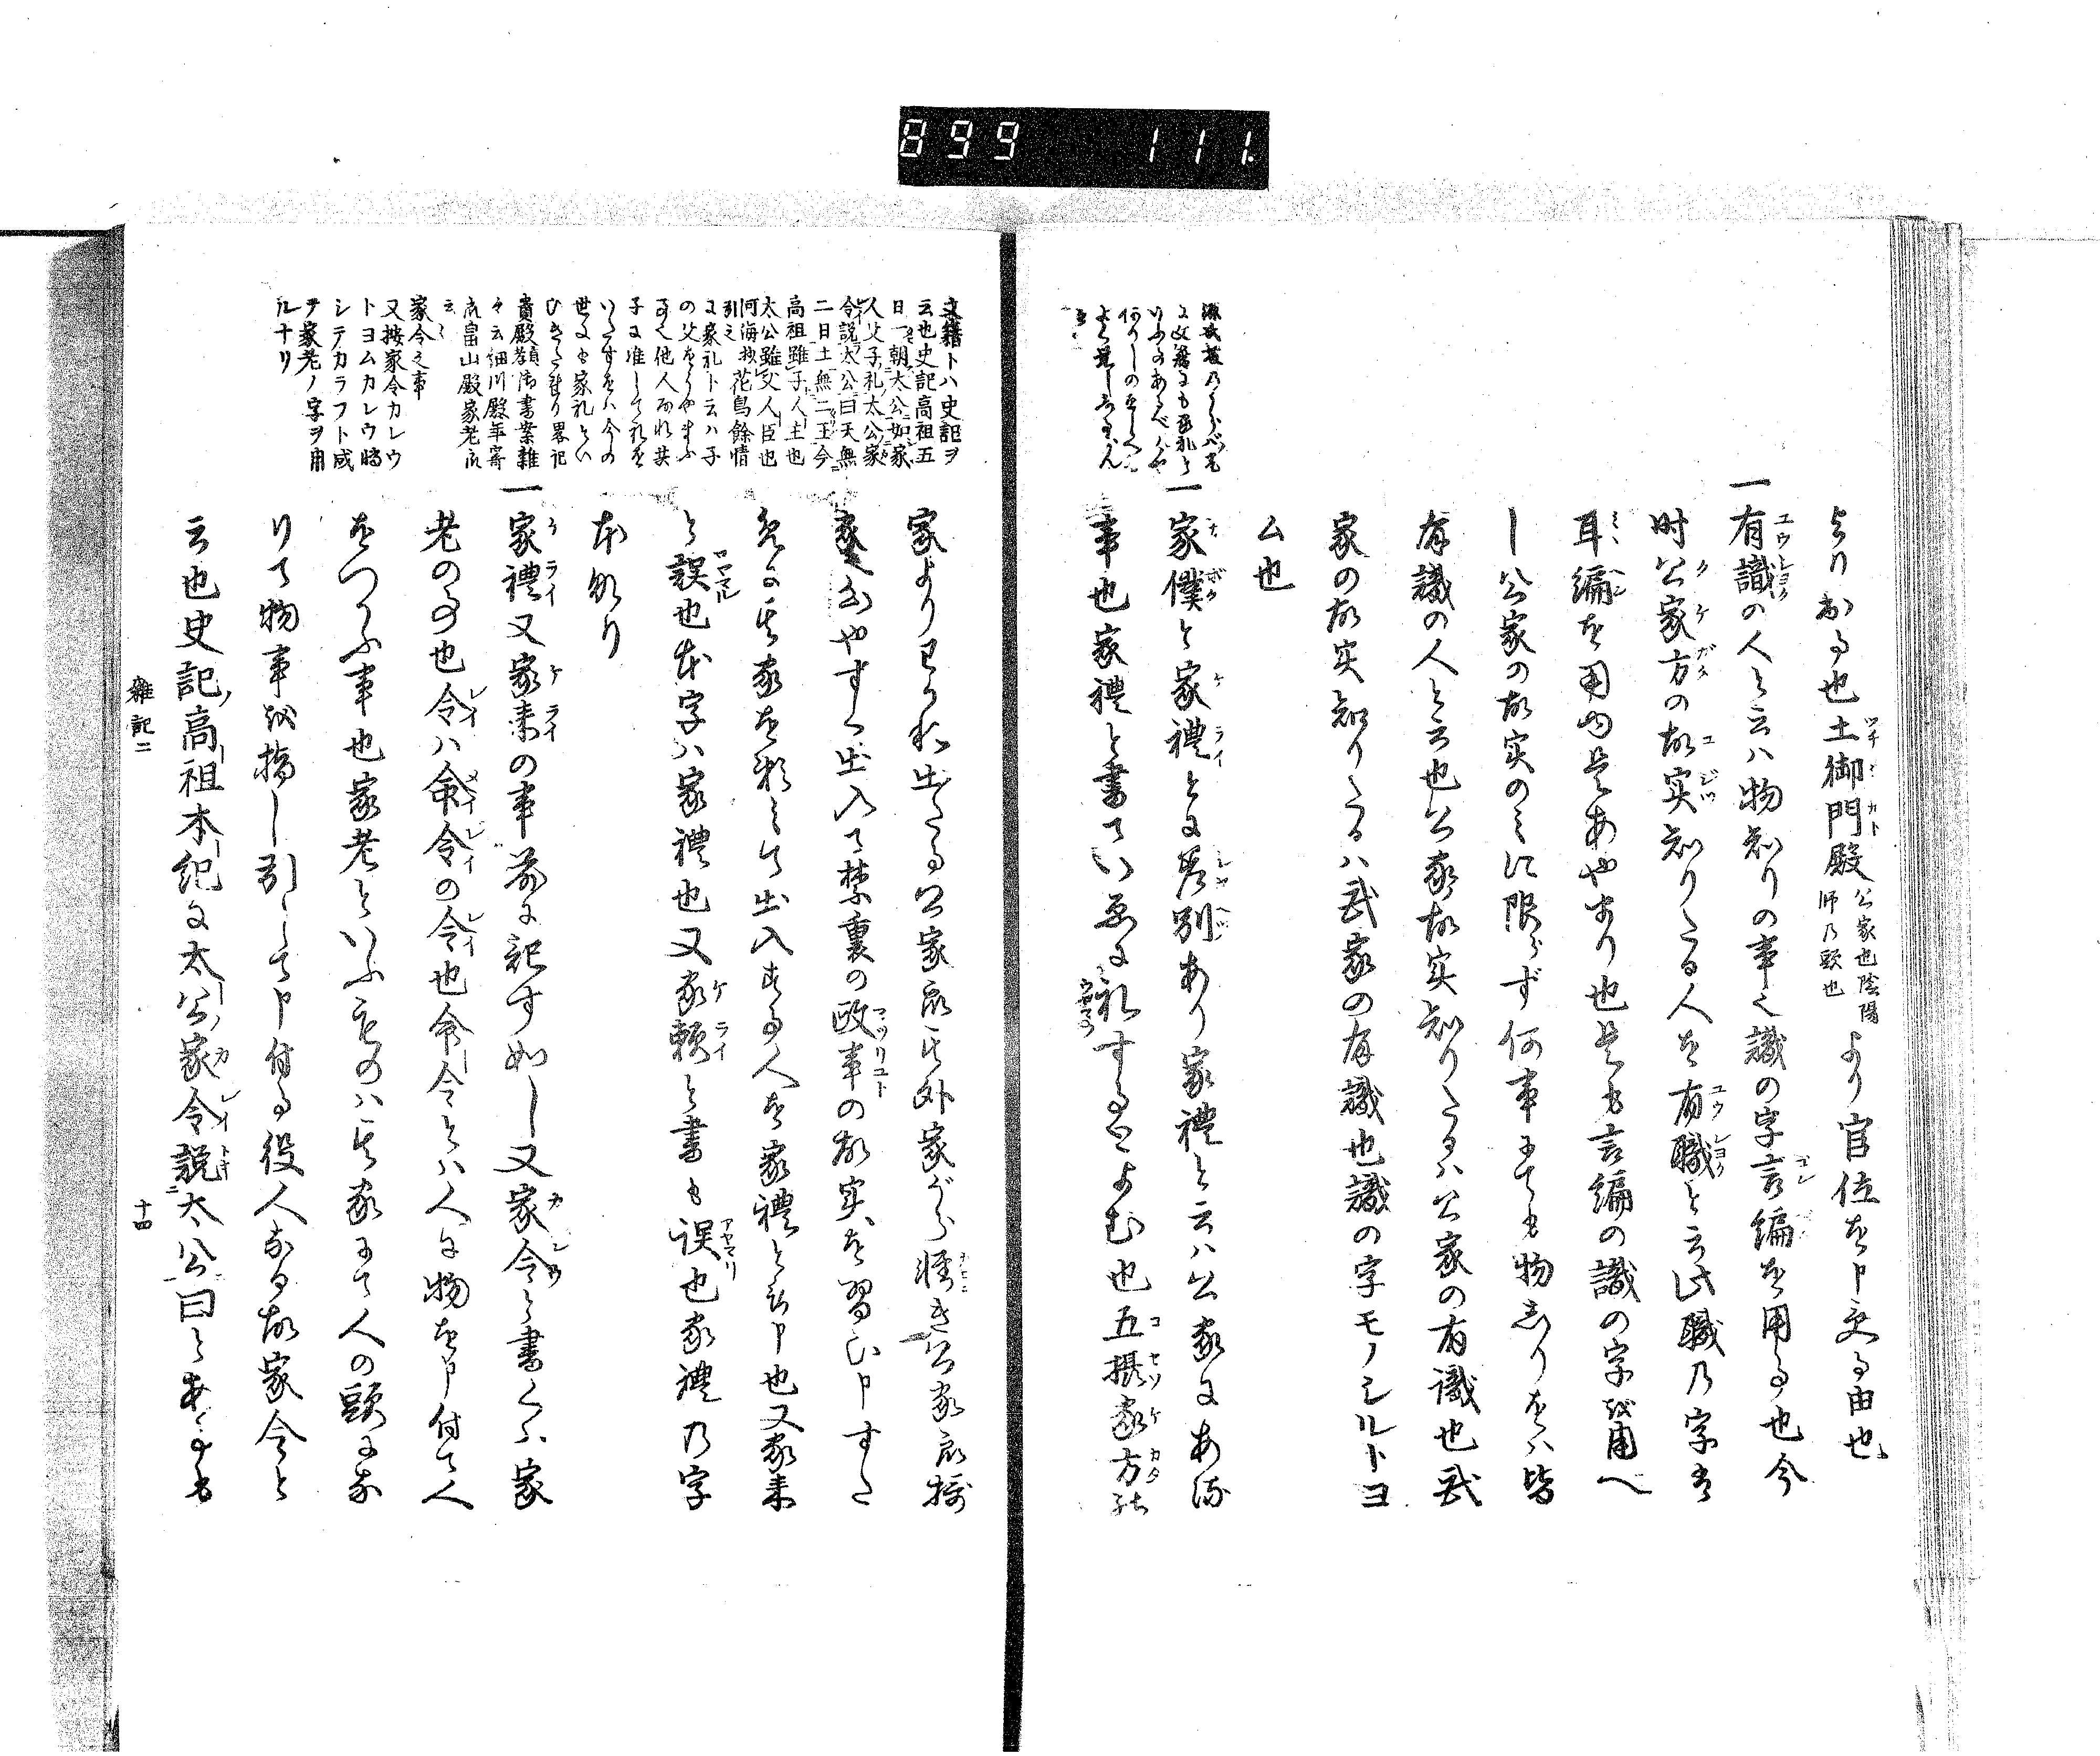 899 111.
よりおる也土御門殿公家也陰陽師乃頭也より官位を申受る由也
一有識の人と云ハ物知りの事也識の字言編を用る也今
時公家方の故実知りたる人を有職と云此職乃字は
耳編を用由是あやまり也是も言編の識の字を用へ
し公家の故実のミに限らず何事にても物しりをハ皆
有識の人と云也公家故実知りたるハ公家の有識也武
家の故実知りたるハ武家の有識也識の字モノシルトヨ
ム也
一家僕と家禮とに差別あり家禮と云ハ公家にある
事也家禮と書てハいゑに礼するとよむ也五摂家方の
文籍トハ史記ヲ
云也史記高祖五
日一朝太公如家
人父子礼太公家
令説太公曰天無
二日土無二王今
高祖雖子人主也
太公雖父人臣也
河海抄花鳥餘情
引之
に家礼ト云ハ子
の父をうやまふ
事也他人なれ共
子に准して礼を
いたすをハ今の
世にも家礼とい
ひきたり畧記
貴殿類御書案雑
々云細川殿年寄
衆畠山殿家老衆
云々
家令之事
又按家令カレウ
トヨムカレウ略
シテカラフト成
ヲ家老ノ字ヲ用
ルナリ
家よりわかれ出たる公家衆其外家がら軽き公家衆摂
家へ心やすく出入て禁裏の政事の故実を習ひ申すた
めに其家を頼ミて出入する人を家禮と申也又家来
と誤也本字ハ家禮也又家頼と書も誤也家禮乃字
本なり
一家禮又家来の事前に記す如し又家令と書くハ家
老の事也令ハ命令の令也命令とハ人に物を申付て人
をつかふ事也家老といふものハ其家にて人の頭にな
りて物事を指し引して申付る役人なる故家令と
云也史記高祖本紀に太公家令説太公曰とあるも
雜記二 十四